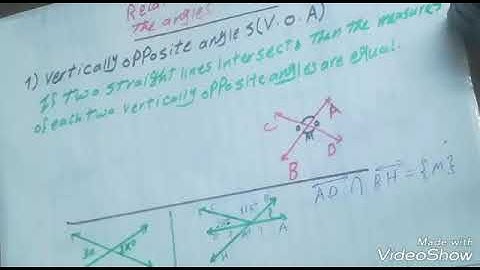 The angles
1) Vertically opposite angles (V.O.A)
If two straight lines intersect, then the measures
of each two vertically opposite angles are equal.
C
A
M
D
B
AD ∩ BH = {M}
Made with
VideoShow